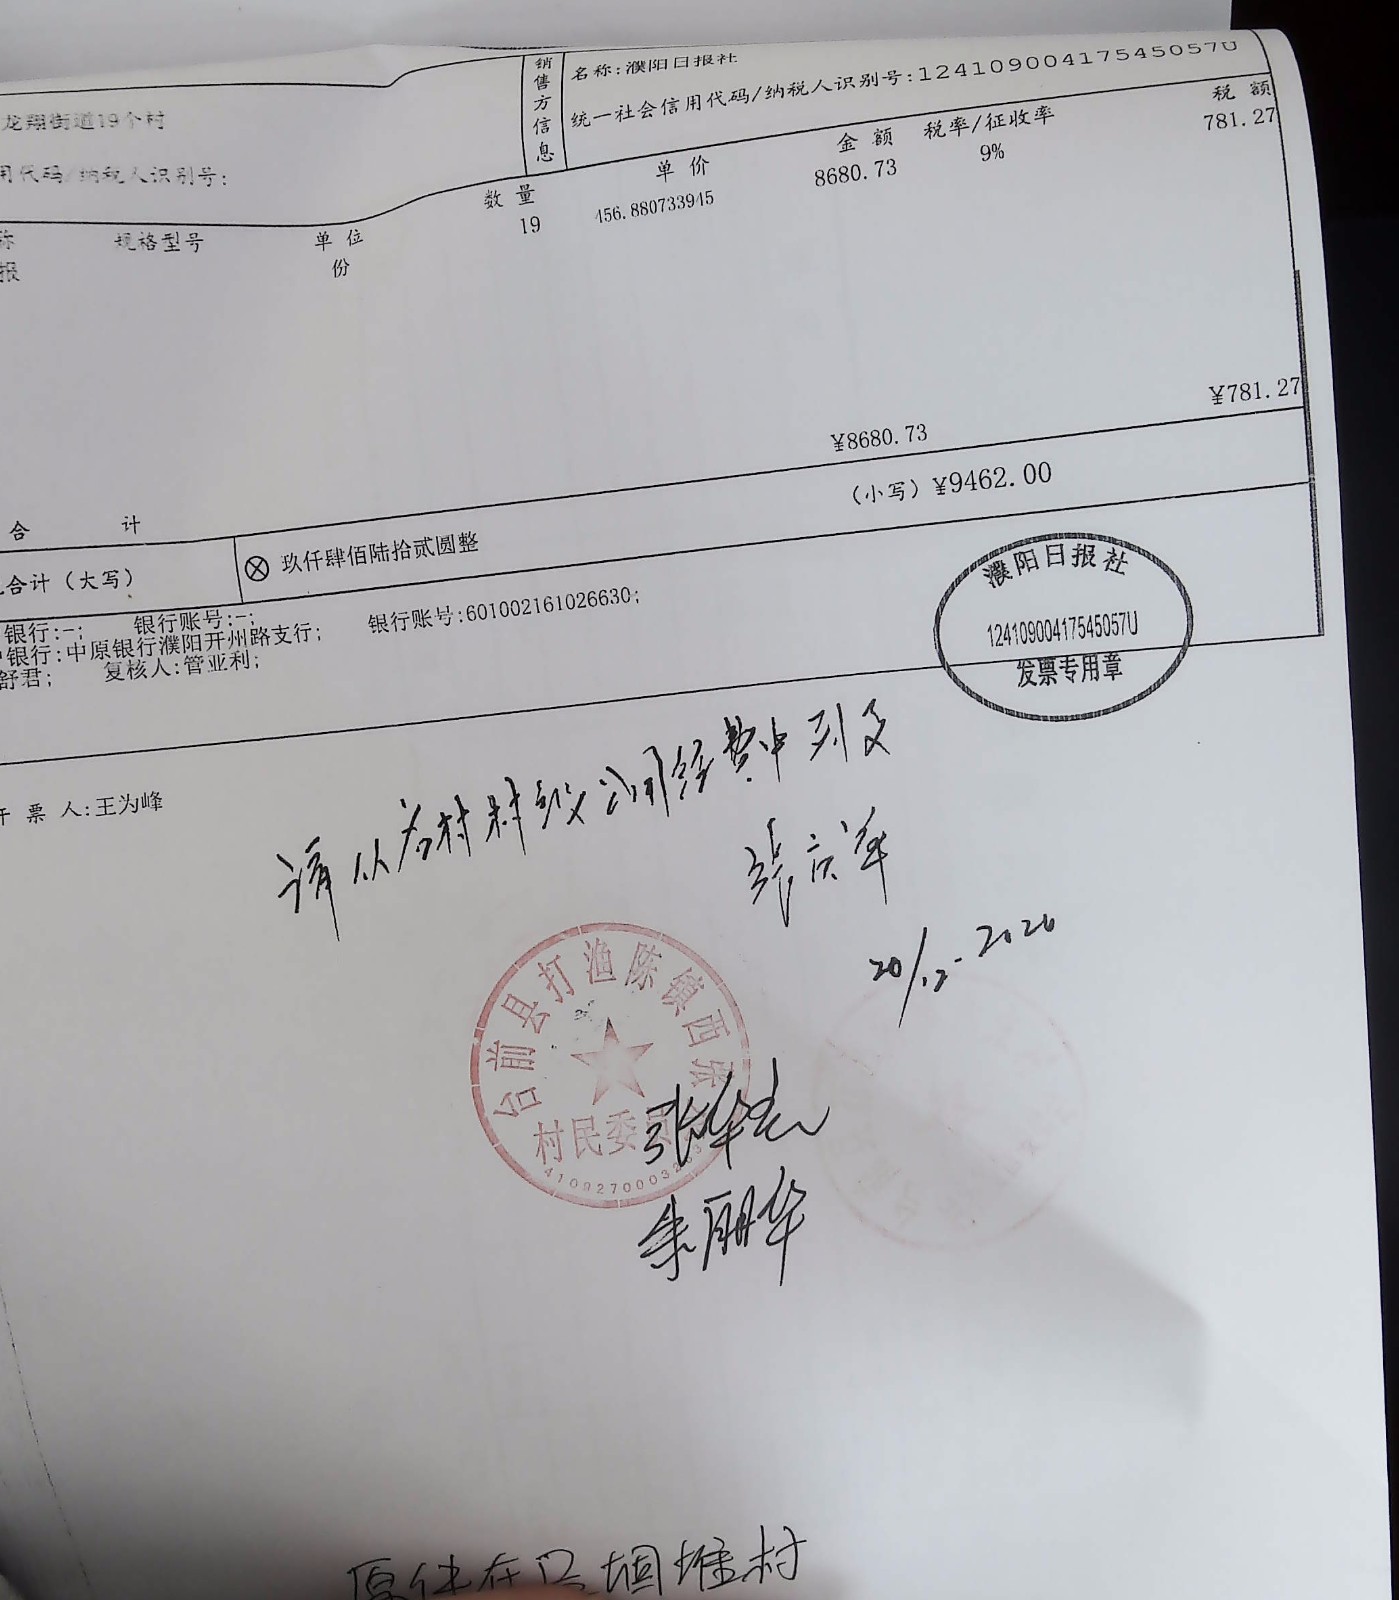 销售方信息
名称:濮阳日报社
统一社会信用代码/纳税人识别号:12410900417545057U
龙翔街道19个村
用代码/纳税人识别号:
称 规格型号 单位 数量 单价 金额 税率/征收率 税额
报 份 19 456.880733945 8680.73 9% 781.27
合计 ¥8680.73 ¥781.27
合计（大写） ⊗ 玖仟肆佰陆拾贰圆整 （小写）¥9462.00
银行:-; 银行账号:-;
银行:中原银行濮阳开州路支行; 银行账号:601002161026630;
舒君; 复核人:管亚利;
濮阳日报社
12410900417545057U
发票专用章
开票人:王为峰
请从各村村级公用经费中列支
张庆华
20/12-2020
台前县打渔陈镇西张
村民委员
朱丽华
原件在 堌堆村